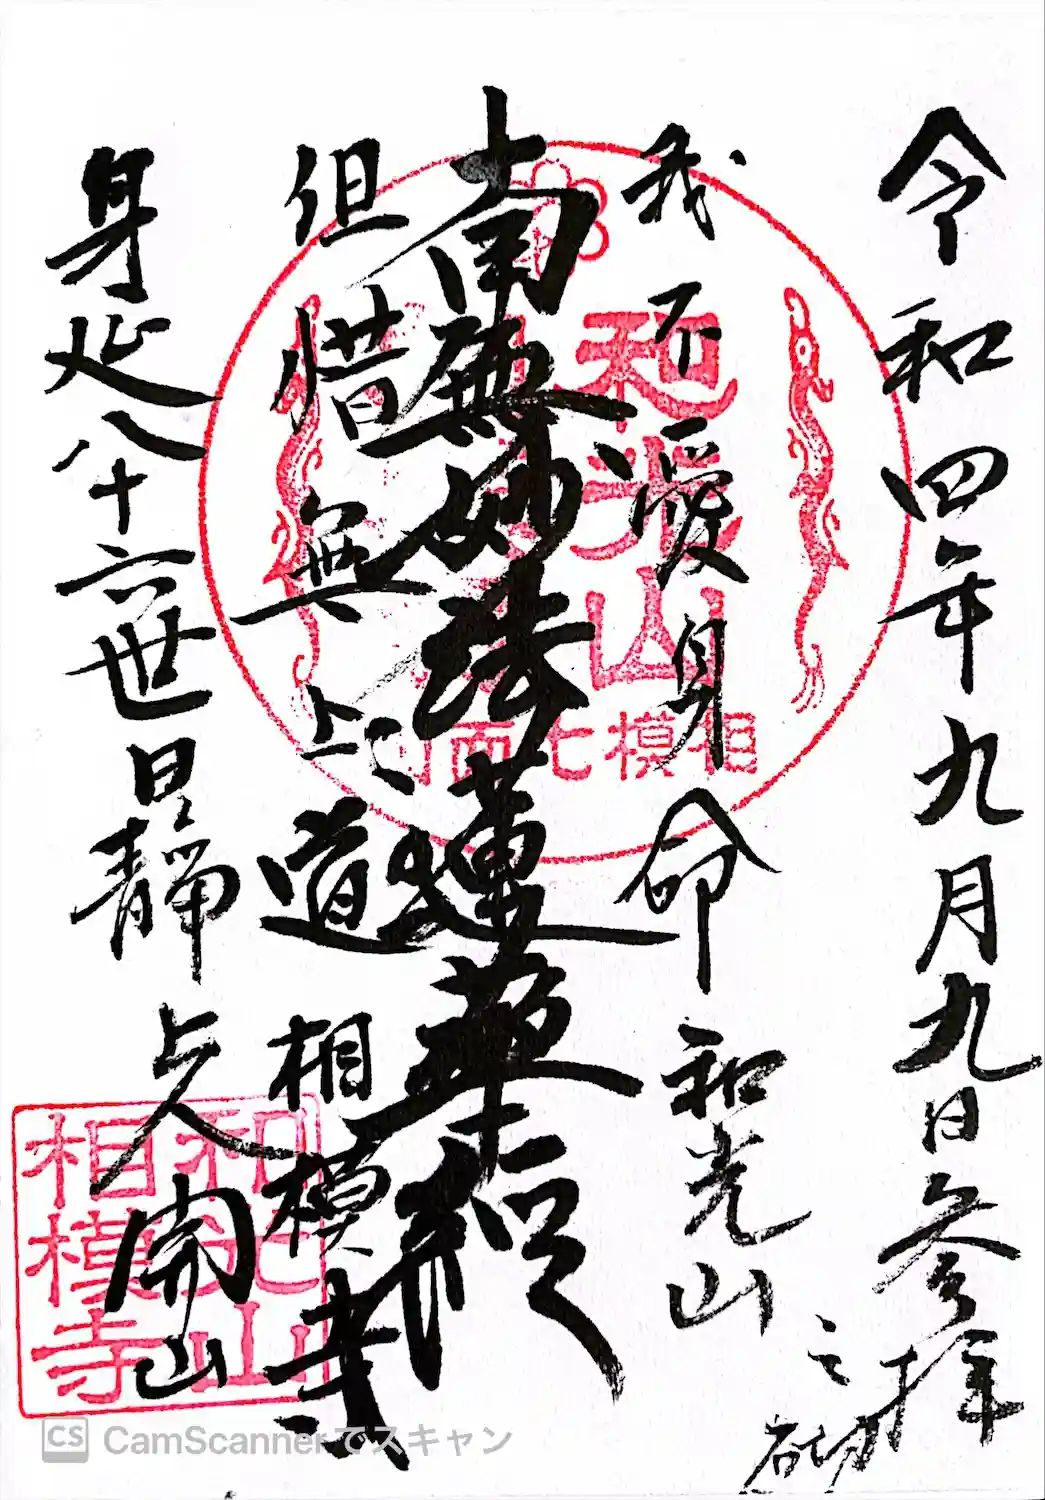 令和四年九月九日参拝
之砌
我不愛身命 和光山
南無妙法蓮華経
但惜無上道 相模寺
身延八十六世日静上人開山
和光山
相模七面山
和光山
相模寺
CS CamScannerでスキャン